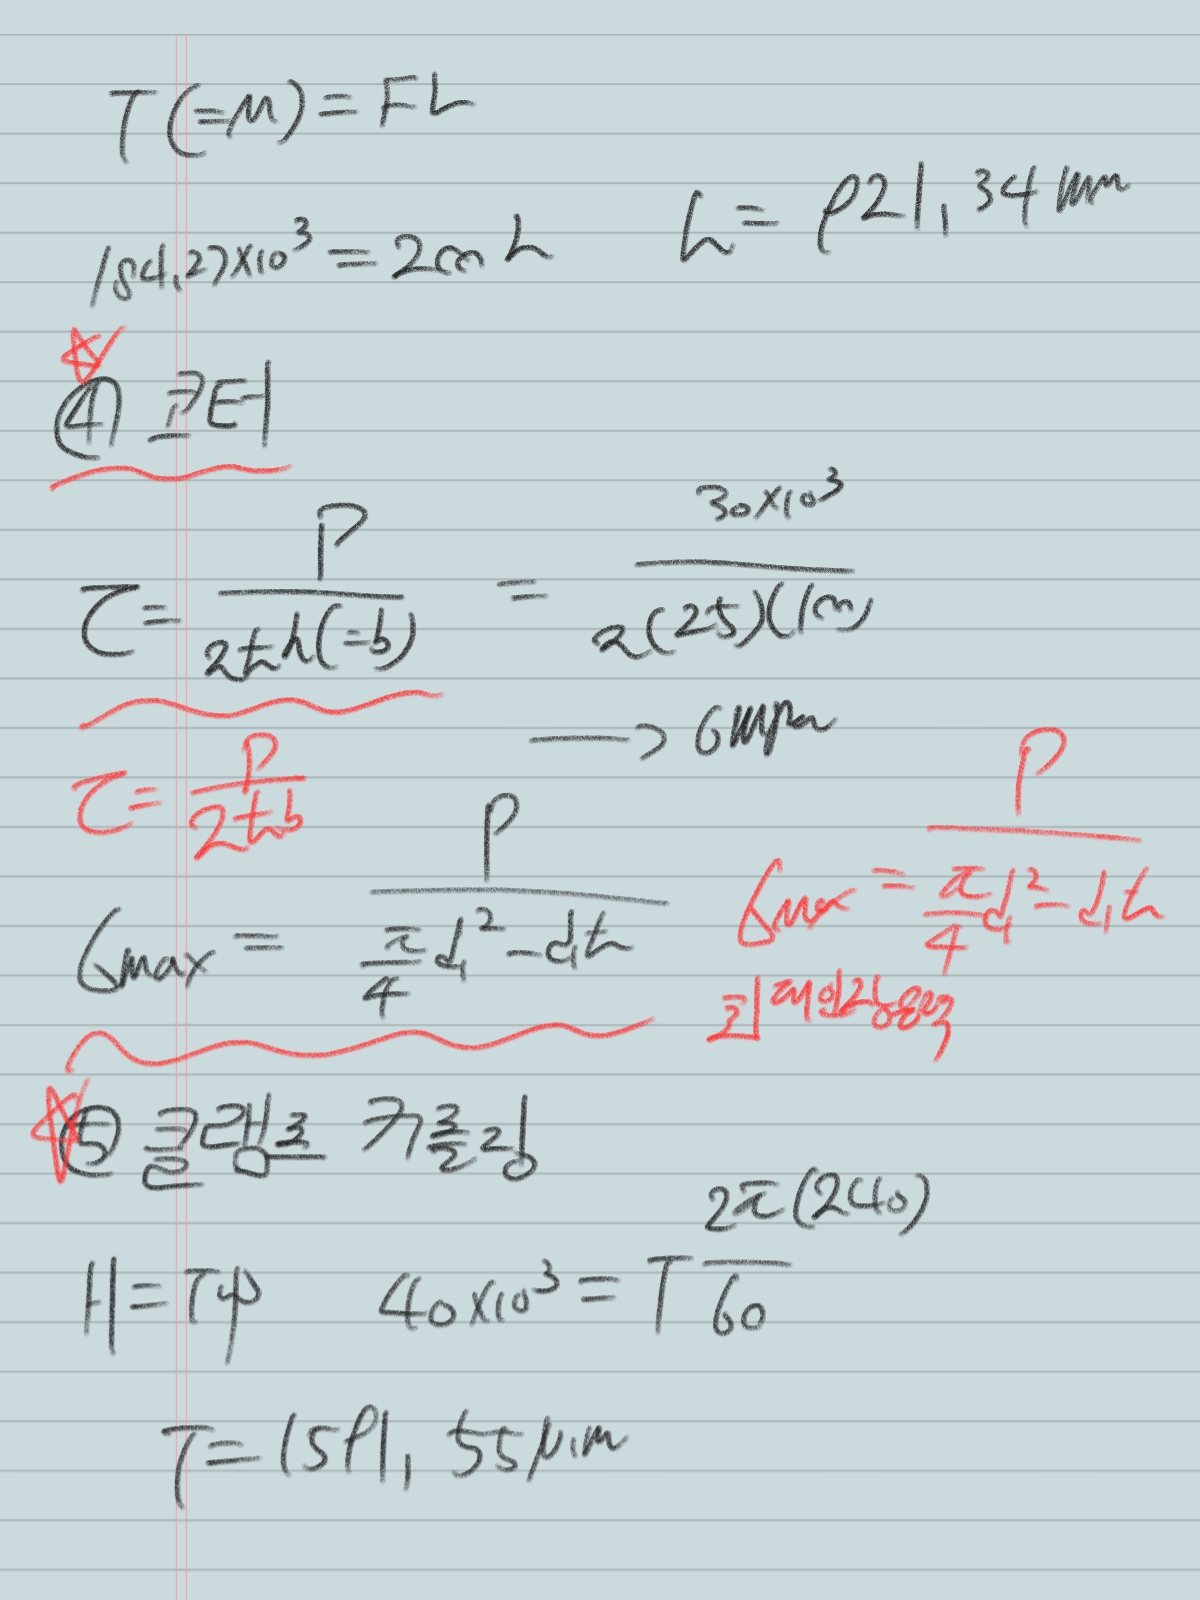 T(=M) = FL
184,27×10³ = 200 L L = 921,34 mm
④ 코터
τ = P / 2th(=b) = 30×10³ / 2(25)(100)
→ 6MPa
τ = P / 2tb
σmax = P / (π/4 d₁² - d₁t) σmax = P / (π/4 d₁² - d₁t)
최대인장응력
⑤ 클램프 커플링
H = Tψ 40×10³ = T 2π(240) / 60
T = 1591,55 N.m